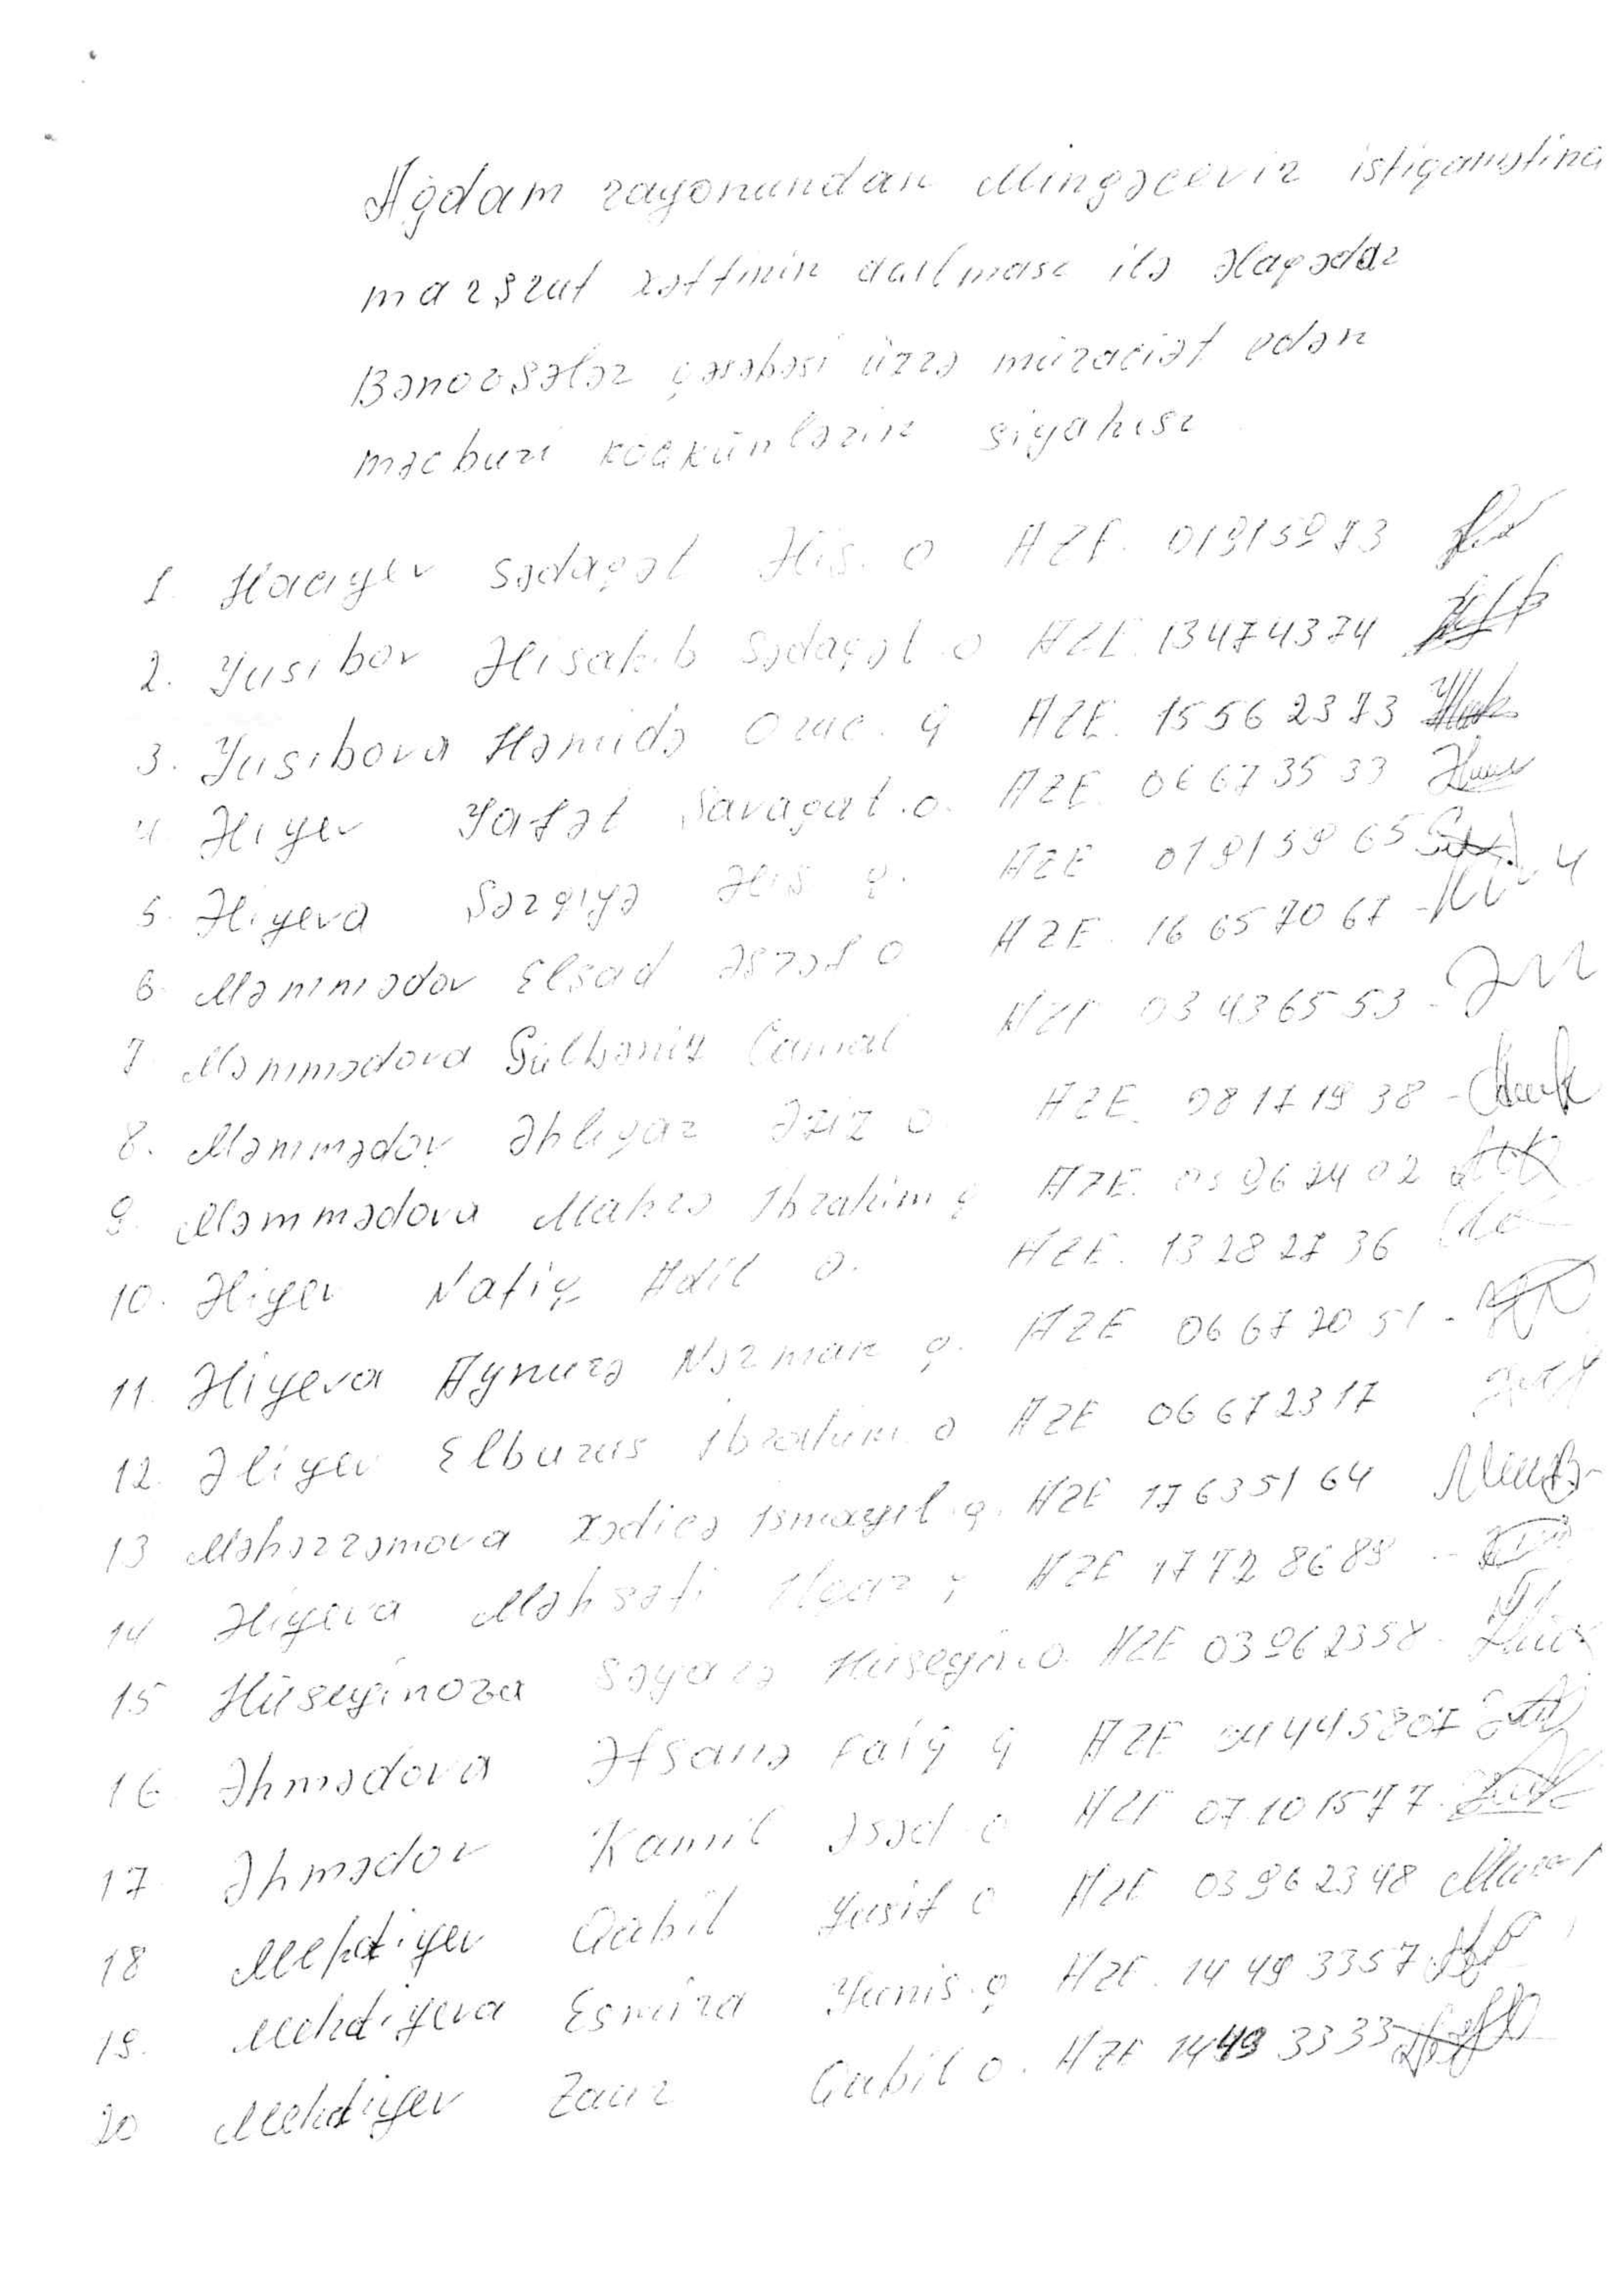 Ağdam rayonundan Mingəcevir istiqamətinə
marşrut xəttinin acılması ilə əlaqədar
Bənövşələr qəsəbəsi üzrə müraciət edən
məcburi köçkünlərin siyahısı
1. Hacıyev Sədaqət Əliş. o AZE. 01915973
2. Yusibov Əlisahib Sədaqət o AZE. 13474374
3. Yusibova Həmidə Oruc. q AZE. 15562373
4. Əliyev Yafət o. AZE. 06673533
5. Əliyeva Şərqiyə Əliş q. AZE 01915965
6. Məmmədov Elşad Əşrəf o AZE. 16657067
7 Məmmədova Gülbəniz Camal AZE 03436553
8. Məmmədov Əhliyar Əziz o AZE. 08171938
9. Məmmədova Mahrə İbrahim q AZE. 03962402
10. Əliyev Natiq Adil o. AZE. 13282736
11. Əliyeva Aynurə Nəriman q. AZE 06672051
12. Əliyev Elburus İbrahim. o AZE 06672317
13 Məhərrəmova Xədicə İsmayıl. q. AZE 17635164
14 Əliyeva Məhsəti q AZE 17728689
15 Hüseyinova Səyarə Hüseyin. o. AZE 03962358
16 Əhmədova Əfsanə Faiq q AZE 04445807
17 Əhmədov Kamil Əsəd o AZE 07101577
18 Mehdiyev Qabil Yusif o AZE 03962348
19. Mehdiyeva Esmira Yunis. q AZE. 14493357
20 Mehdiyev Zaur Qabil o. AZE 14493333